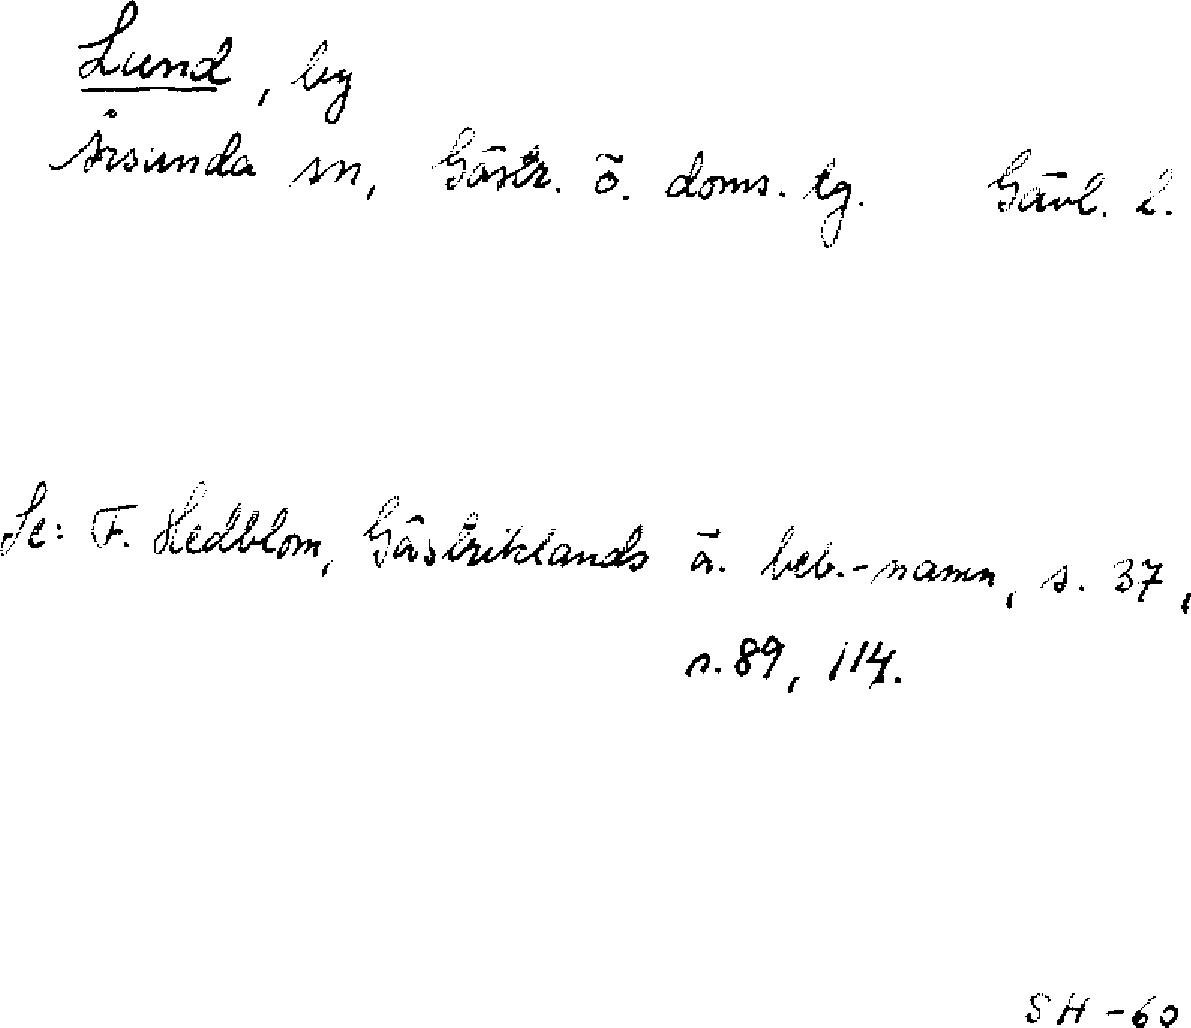 Lund, by
Årsunda sn, Gästr. ö. doms. tg. Gävl. l.
Se: F. Hedblom, Gästriklands ä. beb.-namn, s. 37,
s. 89, 114.
SH-60